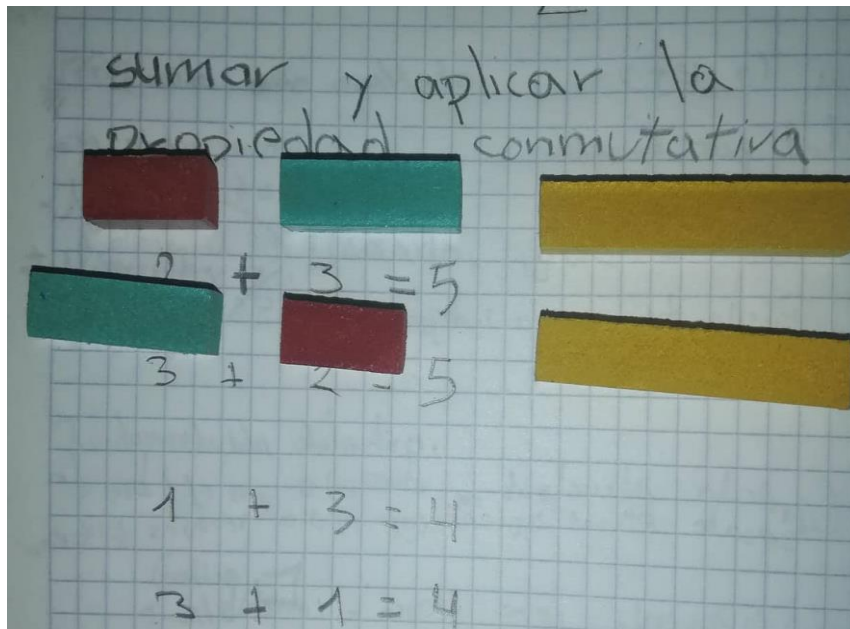 sumar y aplicar la
propiedad conmutativa
2 + 3 = 5
3 + 2 = 5
1 + 3 = 4
3 + 1 = 4